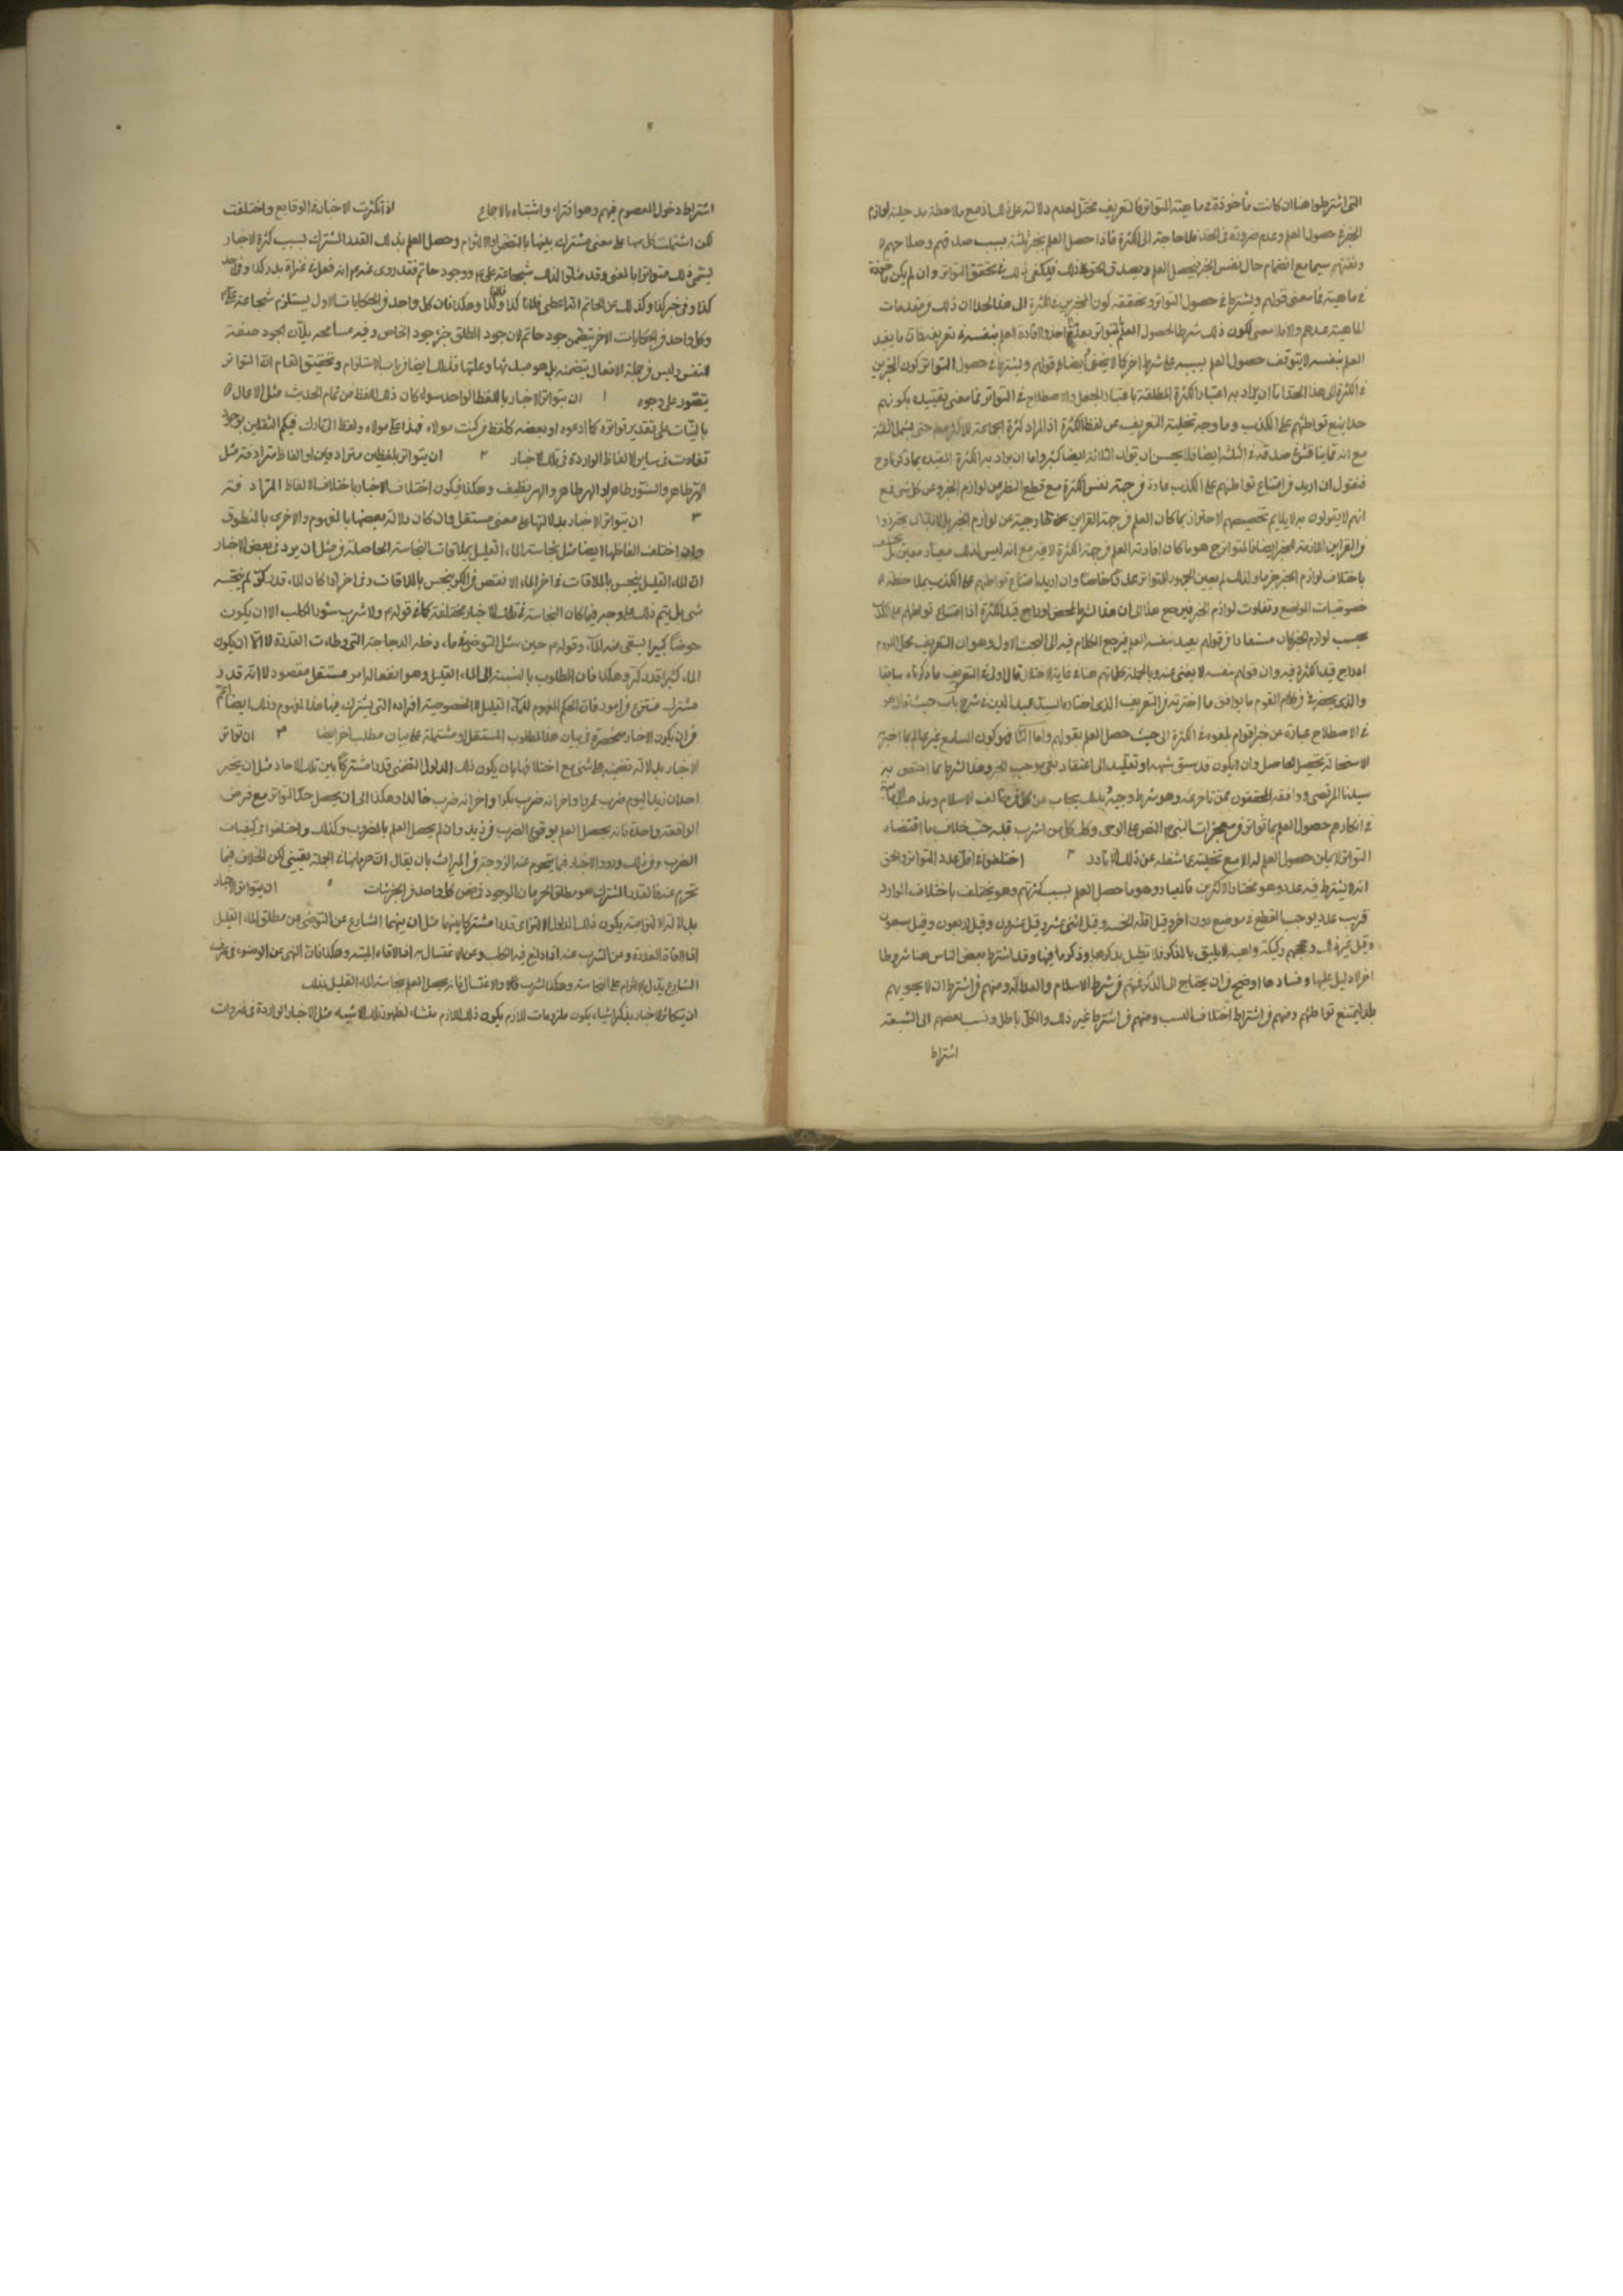 التى اشترطوا هنا ان كانت مأخوذة فى ماهية التواتر فالتعريف مختل لعدم دلالته على ذلك اذ مع ملاحظة مدخلية لوازم
الخبر فى حصول العلم وعدم ضرورته فى الحد فلا حاجة الى الكثرة فاذا حصل العلم بخبر ثلثة بسبب صدقهم وصلاحهم
وثقتهم سيما مع انضمام حال نفس الخبر فيحصل العلم ويصدق الحق على ذلك فيكفى ذلك فى تحقق التواتر وان لم يكن مأخوذة
فى ماهيته فما معنى قولهم ويشترط فى حصول التواتر وتحققه كون المخبرين فى الكثرة الى هذا الحد لان ذلك من مقدمات
الماهية عندهم والا فلا معنى لكون ذلك شرطا لحصول العلم بالتواتر بعد افادة العلم بنفسه فى تعريفه فان ما يفيد
العلم بنفسه لا يتوقف حصول العلم بسببه على شرط اخر كما لا يخفى وايضا قولهم ويشترط فى حصول التواتر كون المخبرين
فى الكثرة الى هذا الحد اما ان يراد به اعتبار الكثرة المطلقة باعتبار الجعل والاصطلاح فى التواتر فما معنى تقييده بكونهم
حدا يمنع تواطئهم على الكذب وما وجه تخلية التعريف عن لفظ الكثرة اذ المراد كثرة الجماعة لا اكثرهم حتى يشمل الثلثة
مع انه تماينا قشوا صدقه فى الثلثة ايضا فلا يحسن ان يقول الثلاثة ايضا كثير واما ان يراد به الكثرة المقيدة بما ذكر فاوح
فنقول ان اريد من امتناع تواطئهم على الكذب عادة من جهة نفس الكثرة مع قطع النظر عن لوازم الخبر وعن كل شئ فمع
انهم لا يقولون به لا يلايم تخصيصهم الاحتراز بما كان العلم من جهة القراين الخارجية عن لوازم الخبر بل لابد ان يحترزوا
والقراين اللازمة للخبر ايضا فالمتواتر ح هو ما كان افادته العلم من جهة الكثرة لا غير مع انه ليس لذلك معيار معين بل يختلف
باختلاف لوازم الخبر جزما ولذلك لم يعين الجمهور للتواتر عددا خاصا وان اريد امتناع تواطئهم على الكذب بملاحظة
خصوصيات المواضع وتفاوت لوازم الخبر فيرجع هذا الى ان هذا لشرط لمحض ادراج قيد الكثرة اذ امتناع تواطئهم على الكذب
بحسب لوازم الخبر كان مستفادا من قولهم يفيد بنفسه العلم فيرجع الكلام فيه الى البحث الاول وهو ان التعريف مختل للزوم
ادراج قيد الكثرة فيه وان قولهم بنفسه لا يغنى عنه وبالجملة كلماتهم هنا فى غاية الاختلال فالاولى فى التعريف ما ذكرناه سابقا
والذى يحضرنى من كلام القوم ما يوافق ما اخترته من التعريف الذى اختاره السيد عميد الدين فى شرح باب حيث قال هو
فى الاصطلاح عبارة عن خبر اقوام بلغوا فى الكثرة الى حيث حصل العلم بقولهم واما الثانى فهو كون السامع غير عالم بما اخبر به
لاستحالة تحصيل الحاصل وان لا يكون قد سبق بشبهة او تقليد الى اعتقاد نفى موجب الخبر وهذا الشرط مما اختص به
سيدنا المرتضى ووافقه المحققون ممن تاخر عنه وهو شرط وجيه وبذلك يجاب عن كل من خالف الاسلام ومذهب الامامية
فى انكارهم حصول العلم بما تواتر من معجزات النبى ص والنص على الوصى وكل من اشرب قلبه حب خلاف ما اقتضاه
التواتر لا يمكن حصول العلم له الا مع تخليته عما شغله عن ذلك الا نادرا ٣ اختلفوا فى اقل عدد التواتر والحق
انه لا يشترط فيه عدد وهو مختار الاكثرين فالمعيار وهو ما حصل العلم بسبب كثرتهم وهو يختلف باختلاف الموارد
فرب عدد يوجب القطع فى موضع دون اخر وقيل اقله الخمسة وقيل اثنى عشر وقيل عشرون وقيل اربعون وقيل سبعون
وقيل غير ذلك وحججهم ركيكة واهية لا يليق بالذكر فلا نطيل بذكرها وذكر ما فيها وقد اشترط بعض الناس هنا شروطا
اخر لا دليل عليها وفسادها اوضح من ان يحتاج الى الذكر فمنهم من شرط الاسلام والعدالة ومنهم من اشترط ان لا يحويهم
بلد ليمتنع تواطئهم ومنهم من اشترط اختلاف النسب ومنهم من اشترط غير ذلك والكل باطل ونسب بعضهم الى الشيعة
اشتراط
اشتراط دخول المعصوم فيهم وهو افتراء واشتباه بالاجماع اذا تكثرت الاخبار فى الوقايع واختلفت
لكن اشتملت كل منها على معنى مشترك بينها بالتضمن او الالتزام وحصل العلم بذلك القدر المشترك بسبب كثرة الاخبار
يسمى ذلك متواترا بالمعنى وقد مثلوا لذلك بشجاعة على ع وجود حاتم فقد روى عنهم انه فعل فى غزاة بدر كذا وفى احد
كذا وفى خيبر كذا وكذلك عن الحاتم انه اعطى فلانا كذا وفلانا كذا وهكذا فان كل واحد من الحكايات الاول يستلزم شجاعة على ع
وكل واحد من الحكايات الاخر يتضمن جود حاتم لان جود المطلق جزء جود الخاص وفيه مسامحه بل ان الجود صفة
للنفس وليس من جملة الافعال يتضمنه بل هو مبدئها وعلتها فذلك ايضا من باب الاستلزام وتحقيق المقام ان التواتر
يتصور على وجوه ١ ان يتواتر الاخبار باللفظ الواحد سواء كان ذلك اللفظ من تمام الحديث مثل الاعمال
بالنيات على تقدير تواتره كما ادعوه او بعضه كلفظ من كنت مولاه فهذا على مولاه ولفظ انى تارك فيكم الثقلين لوجود
تفاوت فى ساير الالفاظ الواردة فى تلك الاخبار ٢ ان يتواتر بلفظين مترادفين او الفاظ مترادفة مثل
الهر طاهر والسنور طاهر او الهر طاهر والهر نظيف وهكذا فيكون اختلاف الاخبار باختلاف الالفاظ المترادفة
٣ ان يتواتر الاخبار بدلالتها على معنى مستقل وان كان دلالة بعضها بالمفهوم والاخرى بالمنطوق
وان اختلف الفاظها ايضا مثل نجاسة الماء القليل بملاقات النجاسة الحاصلة من مثل ان يرد فى بعض الاخبار
ان الماء القليل ينجس بالملاقات وفى اخر الماء الانقص من الكر ينجس بالملاقات وفى اخر اذا كان الماء قدر كر لم ينجسه
شئ بل يتم ذلك على وجه فيما كان النجاسة فى تلك الاخبار مختلفة كما فى قولهم ولا تشرب سؤر الكلب الا ان يكون
حوضا كبيرا يستقى منه الماء وقولهم حين سئل التوضى فى ماء دخلته الدجاجة التى وطئت العذرة لا الا ان يكون
الماء كثيرا قدر كر وهكذا فان المطلوب بالنسبة الى الماء القليل وهو انفعاله امر مستقل مقصود لا انه قدر
مشترك منتزع من امور فان الحكم المفهوم للماء القليل لا لخصوصية افراده التى يشترك فيها هذا المفهوم وذلك ايضا اعم
من ان يكون الاخبار منحصرة فى بيان هذا المطلوب المستقل او مشتملة على بيان مطلب اخر ايضا ٤ ان تواتر
الاخبار بدلالة تضمنية على شئ مع اختلافها بان يكون ذلك المدلول التضمنى قدرا مشتركا بين تلك الاحاد مثل ان يخبر
احد ان زيدا اليوم ضرب عمروا واخر انه ضرب بكرا واخر انه ضرب خالدا وهكذا الى ان يحصل حد التواتر مع فرض
الواقعة واحدة فانه يحصل العلم بوقوع الضرب من زيد وان لم يحصل العلم بالمضروب وكذلك واختلفوا فى كيفيات
الضرب ومن ذلك ورود الاخبار فيما يحرم عنه الزوجة من الميراث بان يقال ان حرمانها فى الجملة يقينى لكن الخلاف فيما
تحرم عنه فالقدر المشترك هو مطلق الحرمان الموجود فى ضمن كل واحد من الجزئيات ٥ ان يتواتر الاخبار
بدلالة التزامية يكون ذلك المدلول الالتزامى قدرا مشتركا بينها مثل ان ينهانا الشارع عن التوضى عن مطلق الماء القليل
اذا لاقاه العذرة وعن الشرب عنه اذا ولغ فيه الكلب وعن الاغتسال به اذا لاقاه الميتة وهكذا فان النهى عن الوضوء فى عرف
الشارع يدل بالالتزام على النجاسة وهكذا الشرب والاغتسال فانه يحصل العلم بنجاسة الماء القليل بذلك
ان يتكاثر الاخبار بذكر اشياء يكون ملزومات للازم يكون ذلك اللازم منشاء لظهور تلك الاشياء مثل الاخبار الواردة فى غزوات